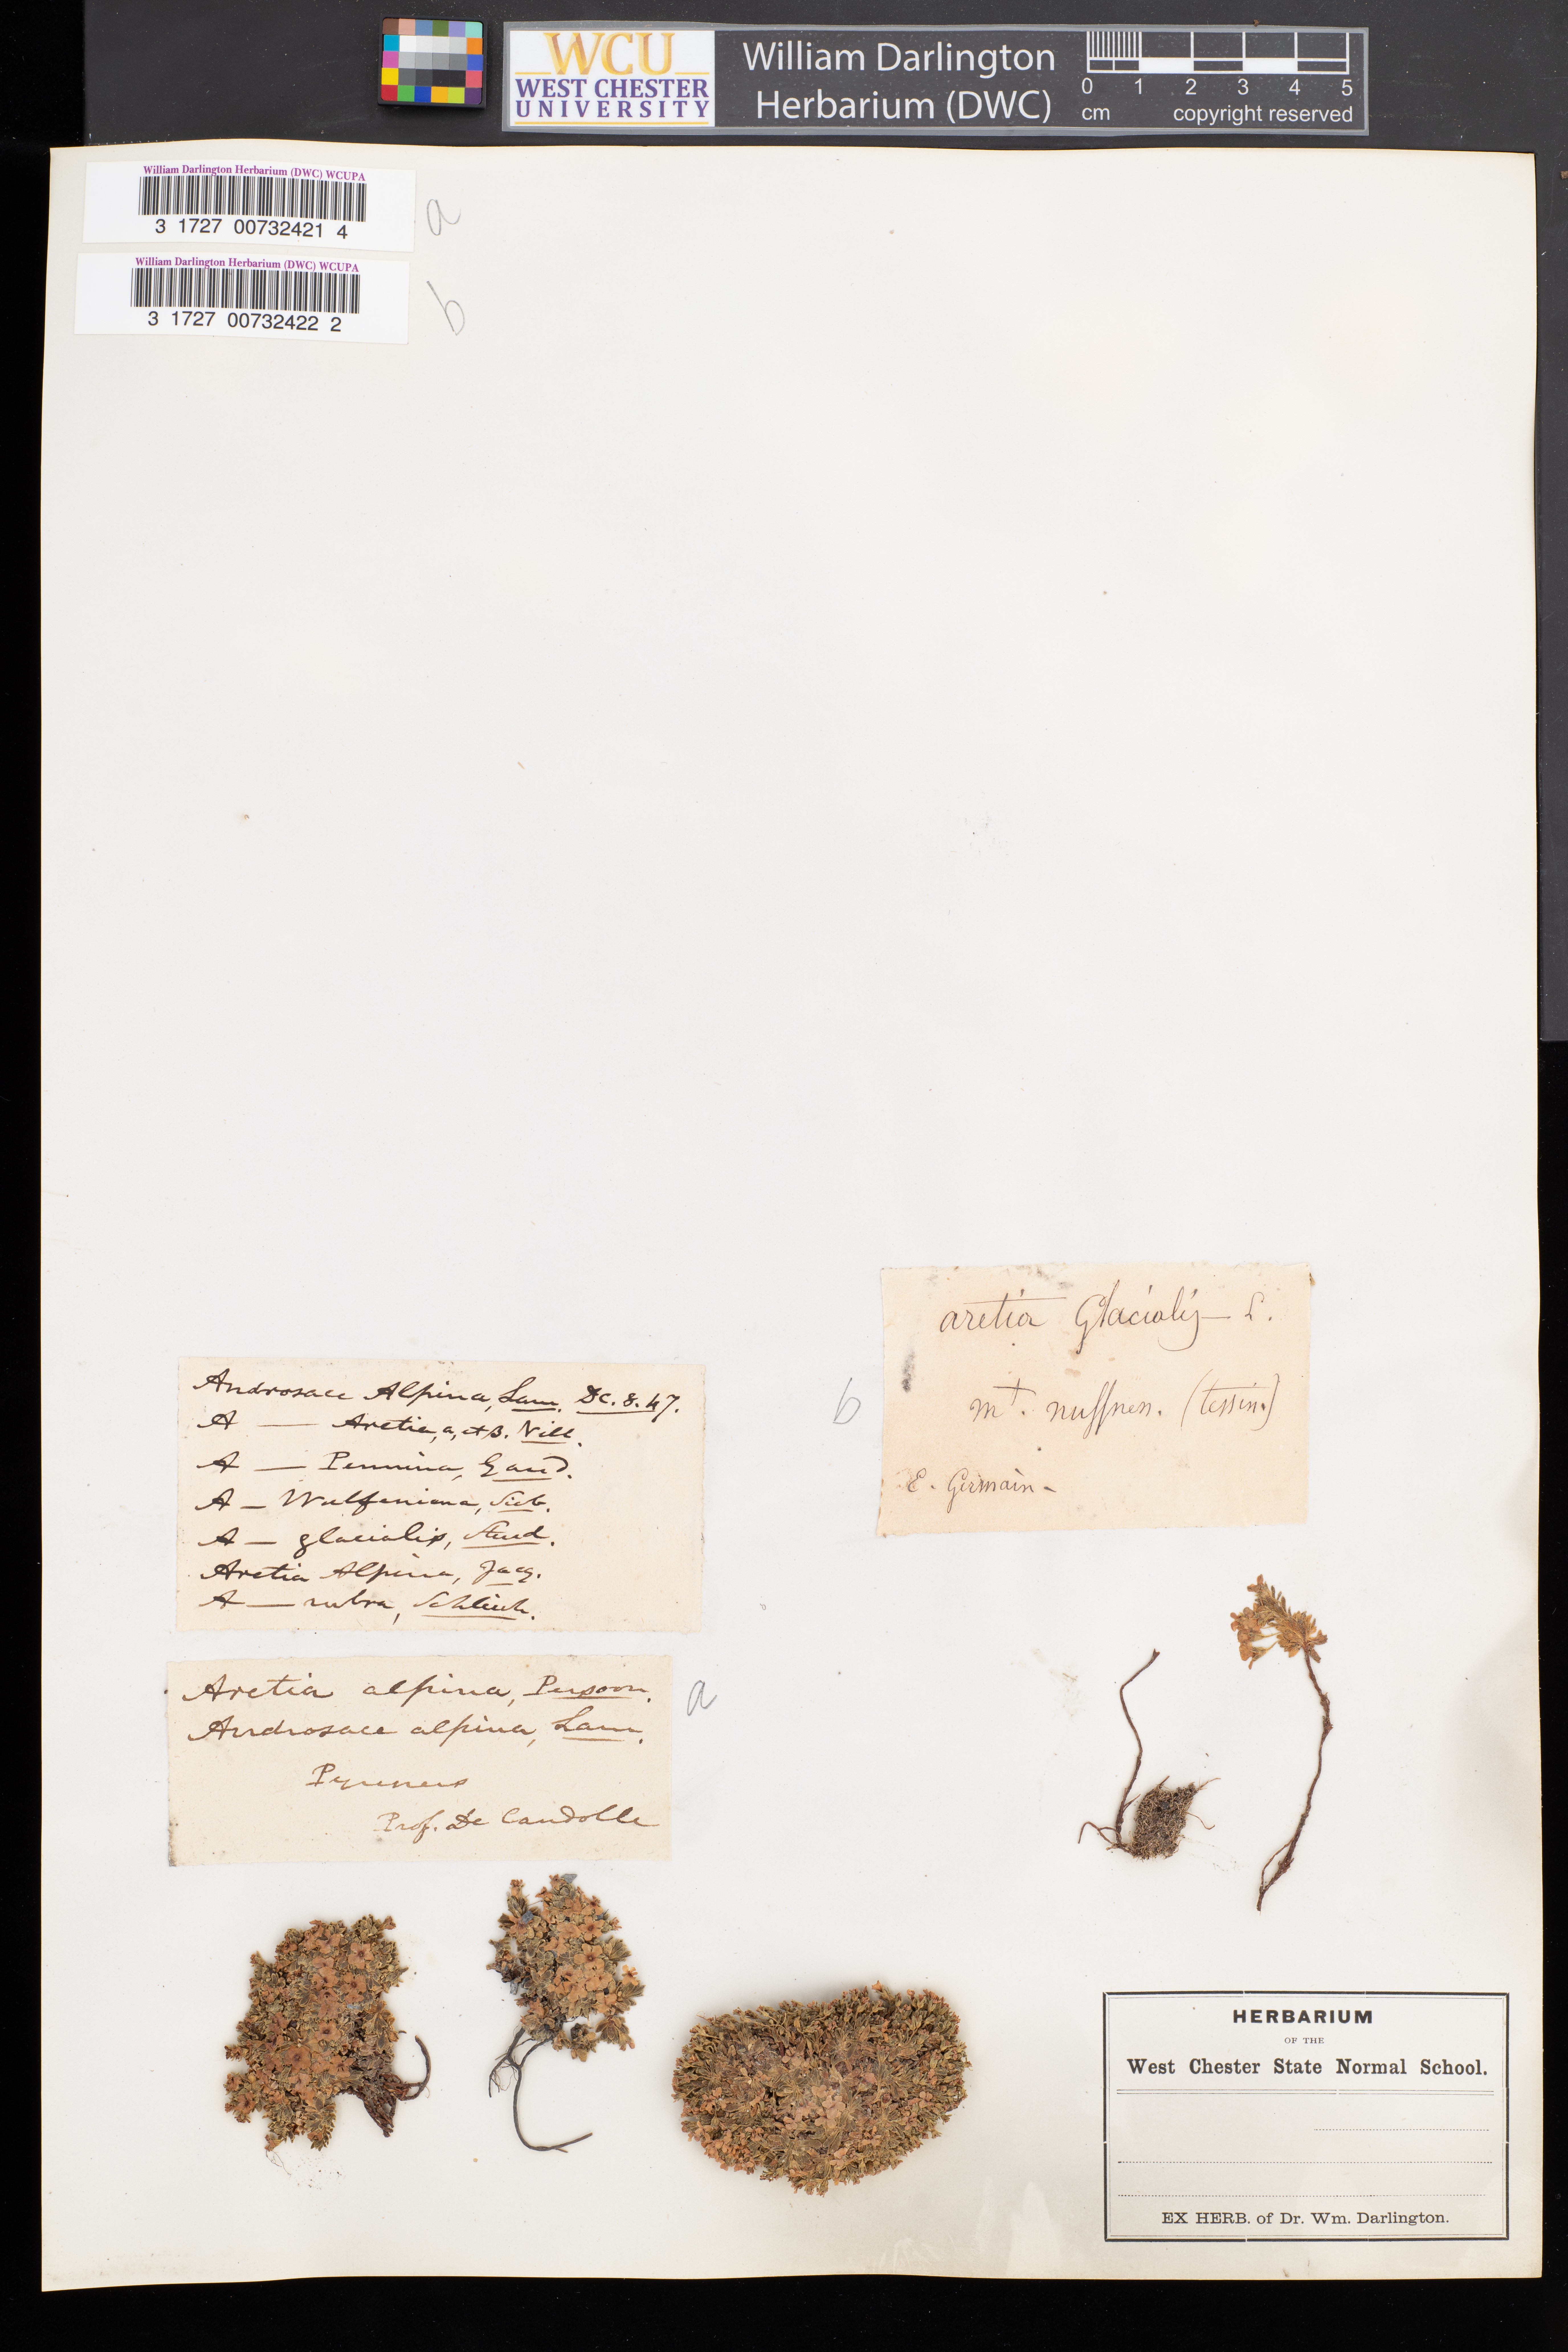 WCU
WEST CHESTER
UNIVERSITY
William Darlington
Herbarium (DWC)
0 1 2 3 4 5
cm copyright reserved
William Darlington Herbarium (DWC) WCUPA
3 1727 00732421 4
a
William Darlington Herbarium (DWC) WCUPA
3 1727 00732422 2
b
Androsace Alpina, Lam. Dc. 8. 47.
A — Aretia, a, et B. Vill.
A — Pennina, Gaud.
A — Wulfeniana, Sieb.
A — glacialis, Stend.
Aretia Alpina, Jacq.
A — rubra, Schleich.
Aretia alpina, Persoon.
Androsace alpina, Lam.
Pyrenees
Prof. De Candolle
a
aretia Glacialis — L.
b
mt. nuffnen. (tessin.)
E. Germain -
HERBARIUM
OF THE
West Chester State Normal School.
EX HERB. of Dr. Wm. Darlington.